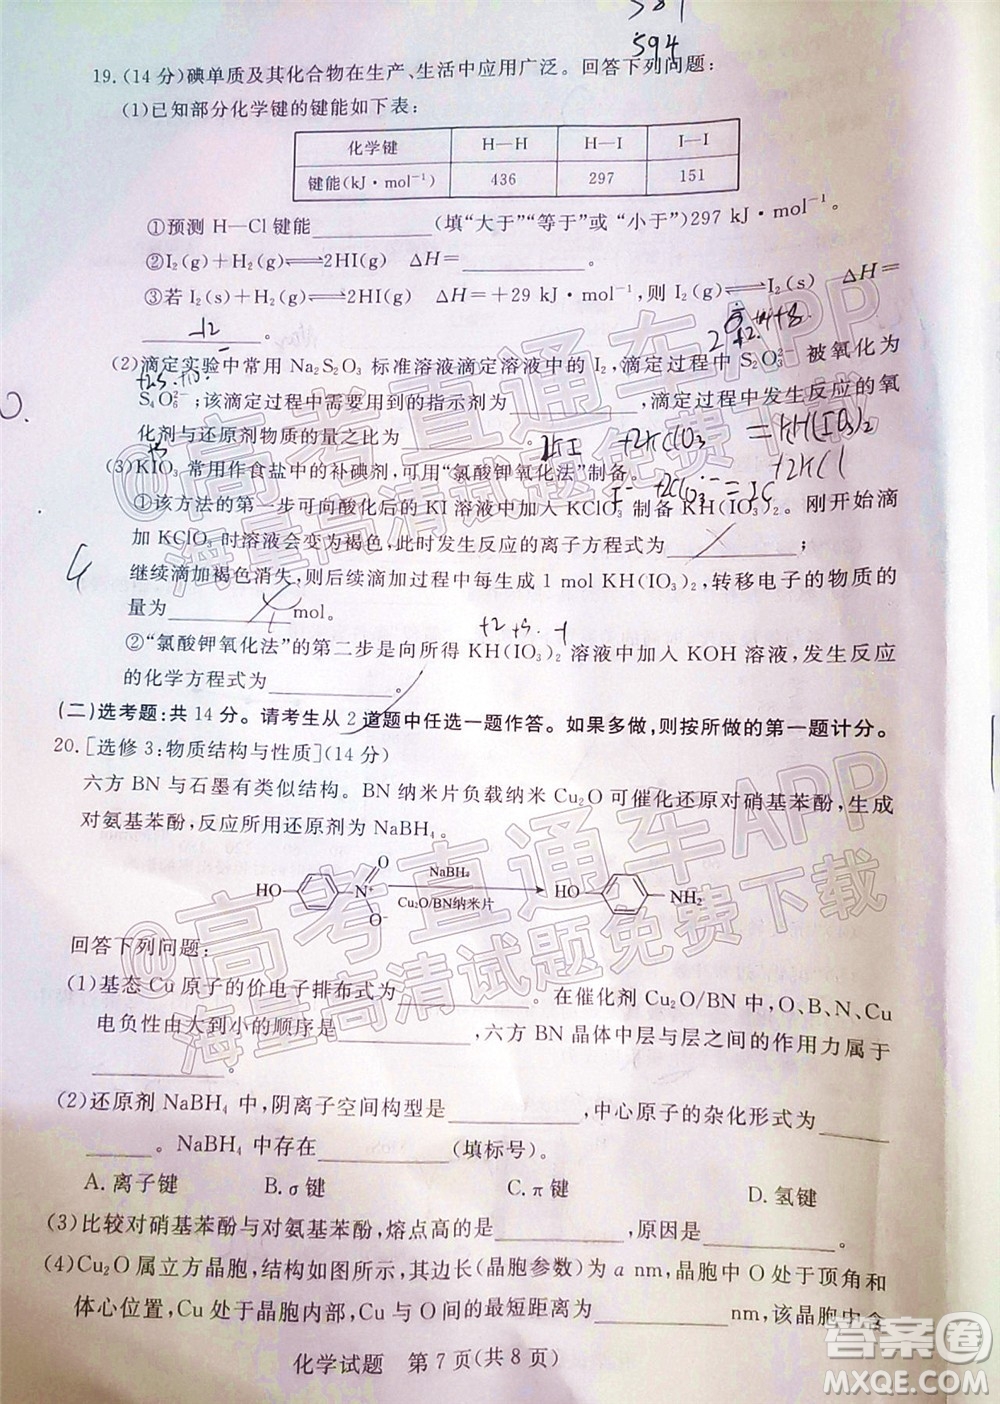 594
19.(14 分)碘单质及其化合物在生产、生活中应用广泛。回答下列问题:
(1)已知部分化学键的键能如下表:
化学键 H—H H—I I—I
键能(kJ·mol⁻¹) 436 297 151
①预测 H—Cl 键能__________(填“大于”“等于”或“小于”)297 kJ·mol⁻¹。
②I₂(g)+H₂(g)⇌2HI(g) ΔH=__________。
③若 I₂(s)+H₂(g)⇌2HI(g) ΔH=+29 kJ·mol⁻¹,则 I₂(g)⇌I₂(s) ΔH=
__________。
(2)滴定实验中常用 Na₂S₂O₃ 标准溶液滴定溶液中的 I₂,滴定过程中 S₂O₃²⁻ 被氧化为
S₄O₆²⁻;该滴定过程中需要用到的指示剂为__________,滴定过程中发生反应的氧
化剂与还原剂物质的量之比为__________。
2KI +2KClO₃ = KH(IO₃)₂
+2KCl
(3)KIO₃ 常用作食盐中的补碘剂,可用“氯酸钾氧化法”制备。
①该方法的第一步可向酸化后的 KI 溶液中加入 KClO₃ 制备 KH(IO₃)₂。刚开始滴
加 KClO₃ 时溶液会变为褐色,此时发生反应的离子方程式为__________;
继续滴加褐色消失,则后续滴加过程中每生成 1 mol KH(IO₃)₂,转移电子的物质的
量为__________mol。
②“氯酸钾氧化法”的第二步是向所得 KH(IO₃)₂ 溶液中加入 KOH 溶液,发生反应
的化学方程式为__________。
(二)选考题:共 14 分。请考生从 2 道题中任选一题作答。如果多做,则按所做的第一题计分。
20.[选修 3:物质结构与性质](14 分)
六方 BN 与石墨有类似结构。BN 纳米片负载纳米 Cu₂O 可催化还原对硝基苯酚,生成
对氨基苯酚,反应所用还原剂为 NaBH₄。
HO N⁺ O O⁻ NaBH₄ Cu₂O/BN纳米片 HO NH₂
回答下列问题:
(1)基态 Cu 原子的价电子排布式为__________。在催化剂 Cu₂O/BN 中,O、B、N、Cu
电负性由大到小的顺序是__________,六方 BN 晶体中层与层之间的作用力属于
__________。
(2)还原剂 NaBH₄ 中,阴离子空间构型是__________,中心原子的杂化形式为______
______。NaBH₄ 中存在__________(填标号)。
A. 离子键 B. σ 键 C. π 键 D. 氢键
(3)比较对硝基苯酚与对氨基苯酚,熔点高的是__________,原因是__________。
(4)Cu₂O 属立方晶胞,结构如图所示,其边长(晶胞参数)为 a nm,晶胞中 O 处于顶角和
体心位置,Cu 处于晶胞内部,Cu 与 O 间的最短距离为__________nm,该晶胞中含
化学试题 第 7 页(共 8 页)
@高考直通车APP
海量高清试题免费下载
@高考直通车APP
海量高清试题免费下载
答案圈
MXQE.COM